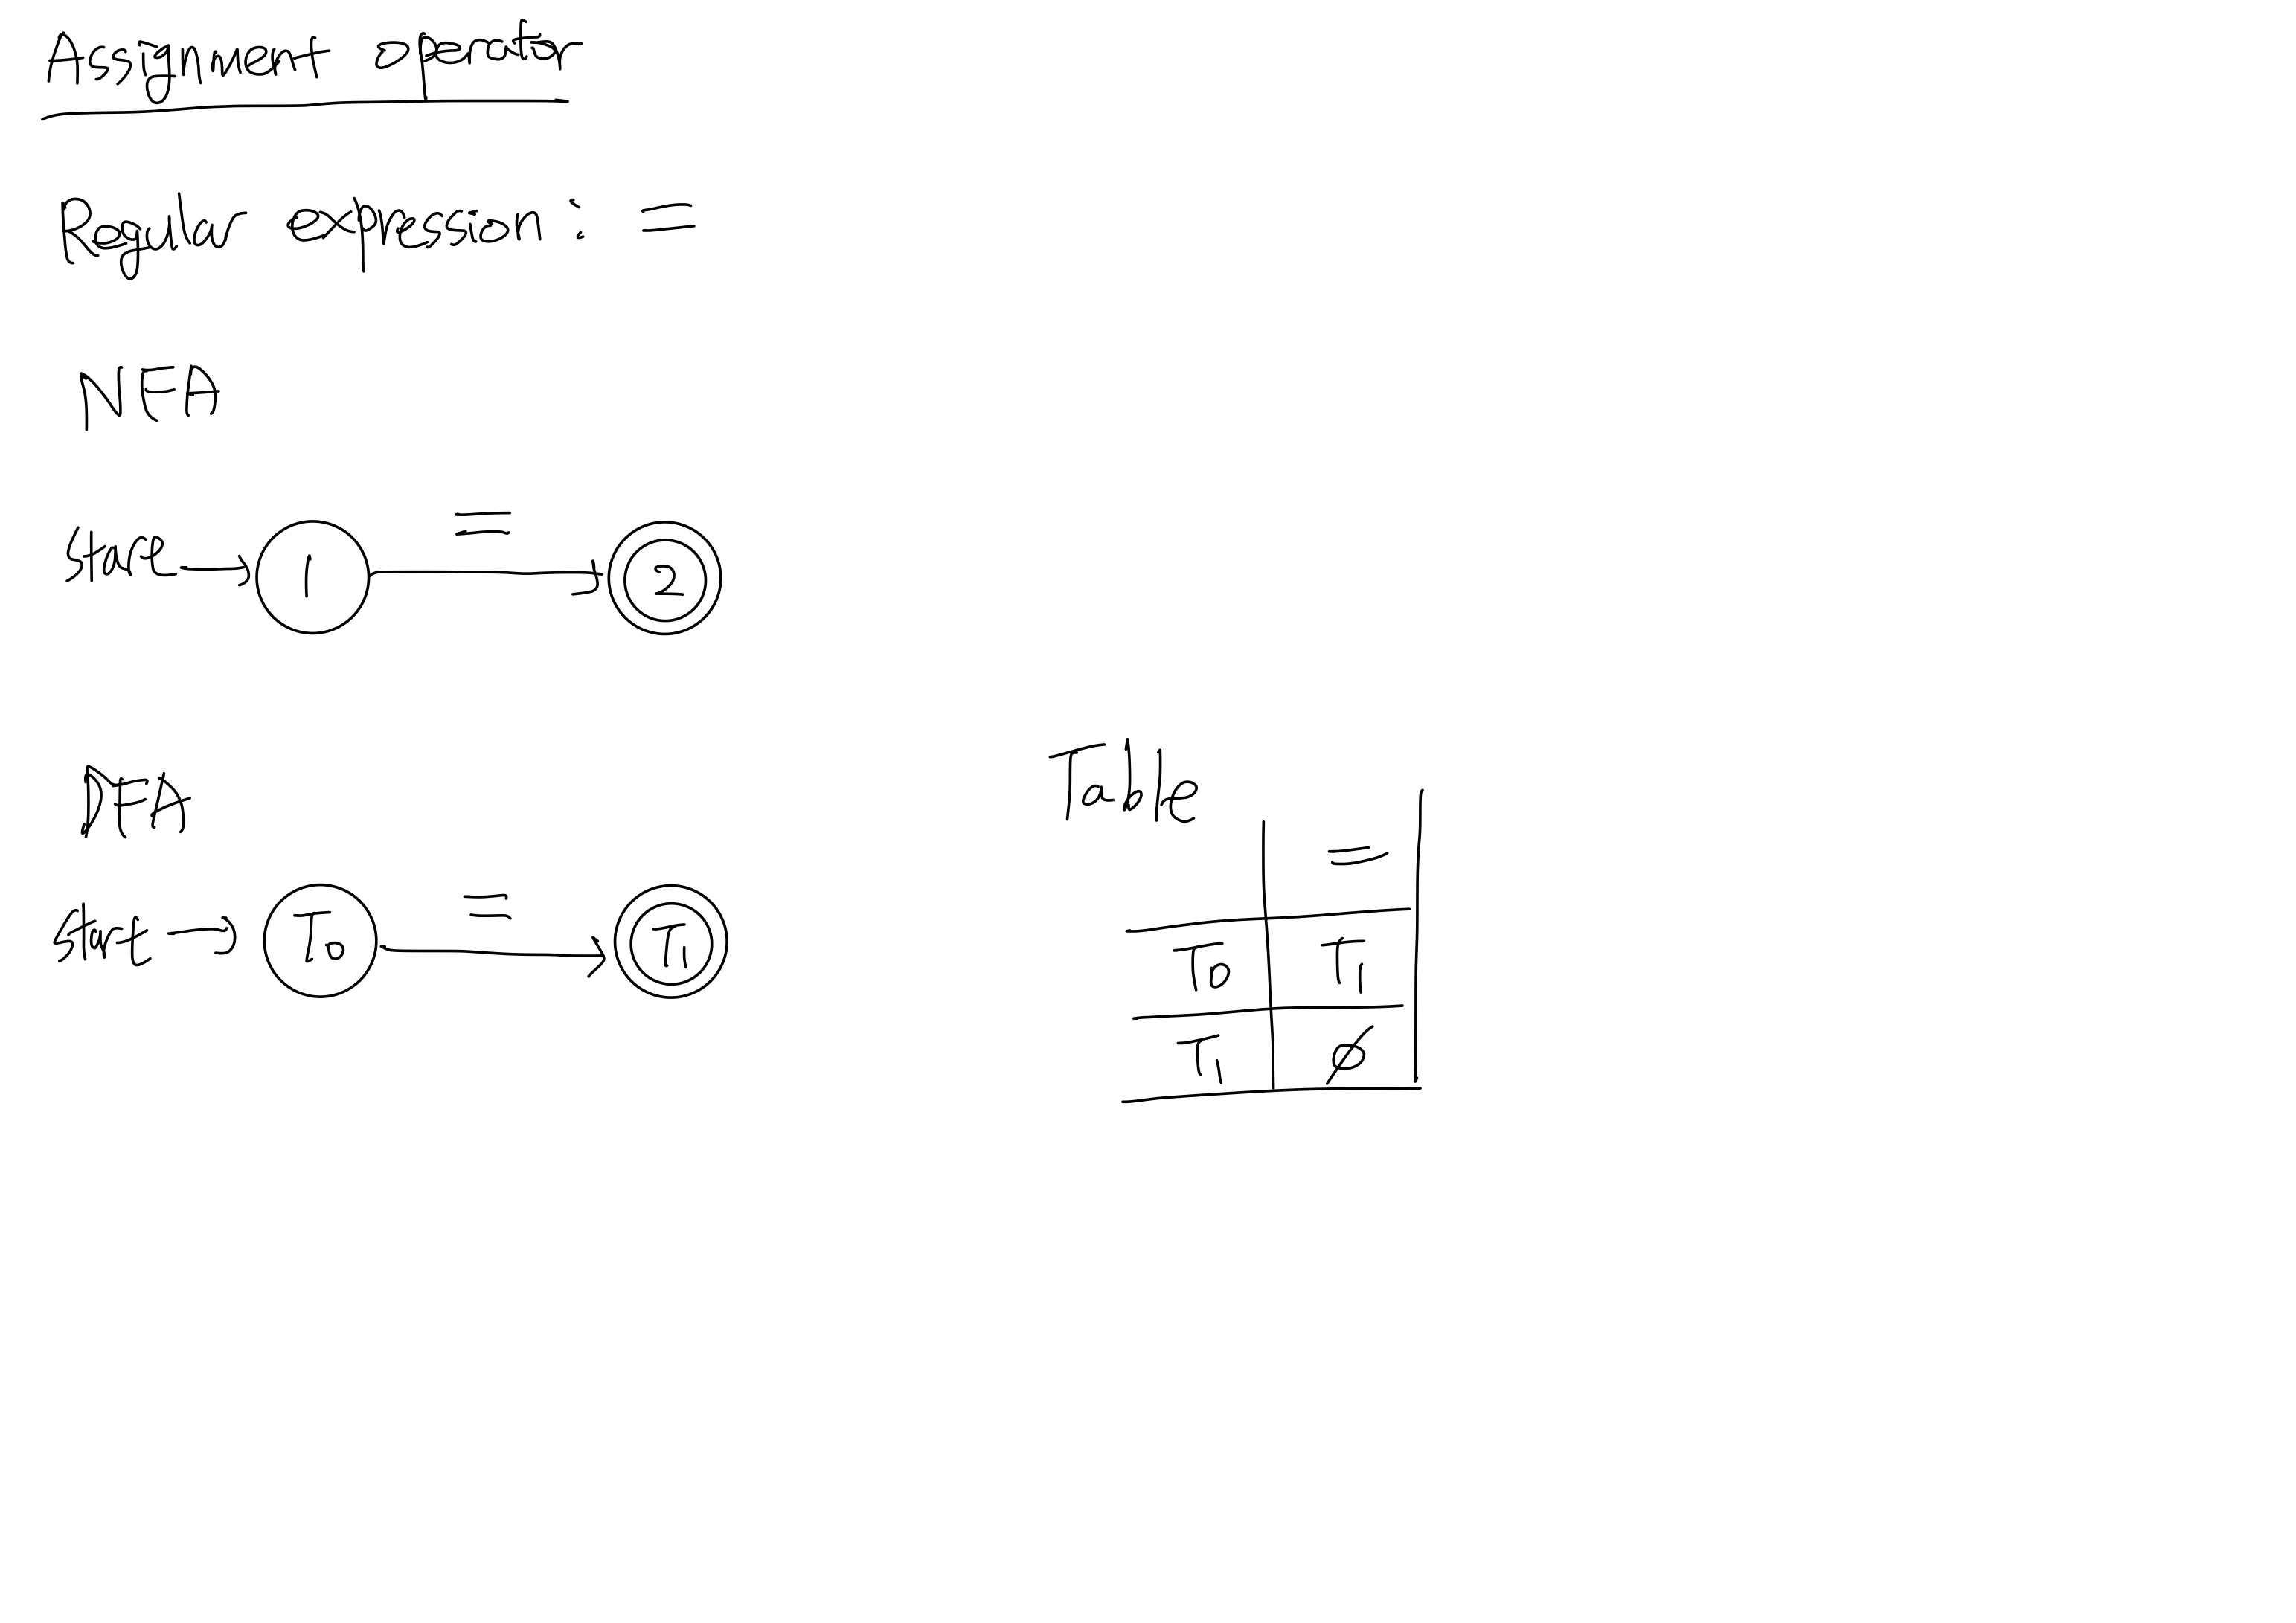 Assignment operator
Regular expression : =
NFA
=
1
2
DFA
start → T0 = T1
Table
=
T0 T1
T1 ∅